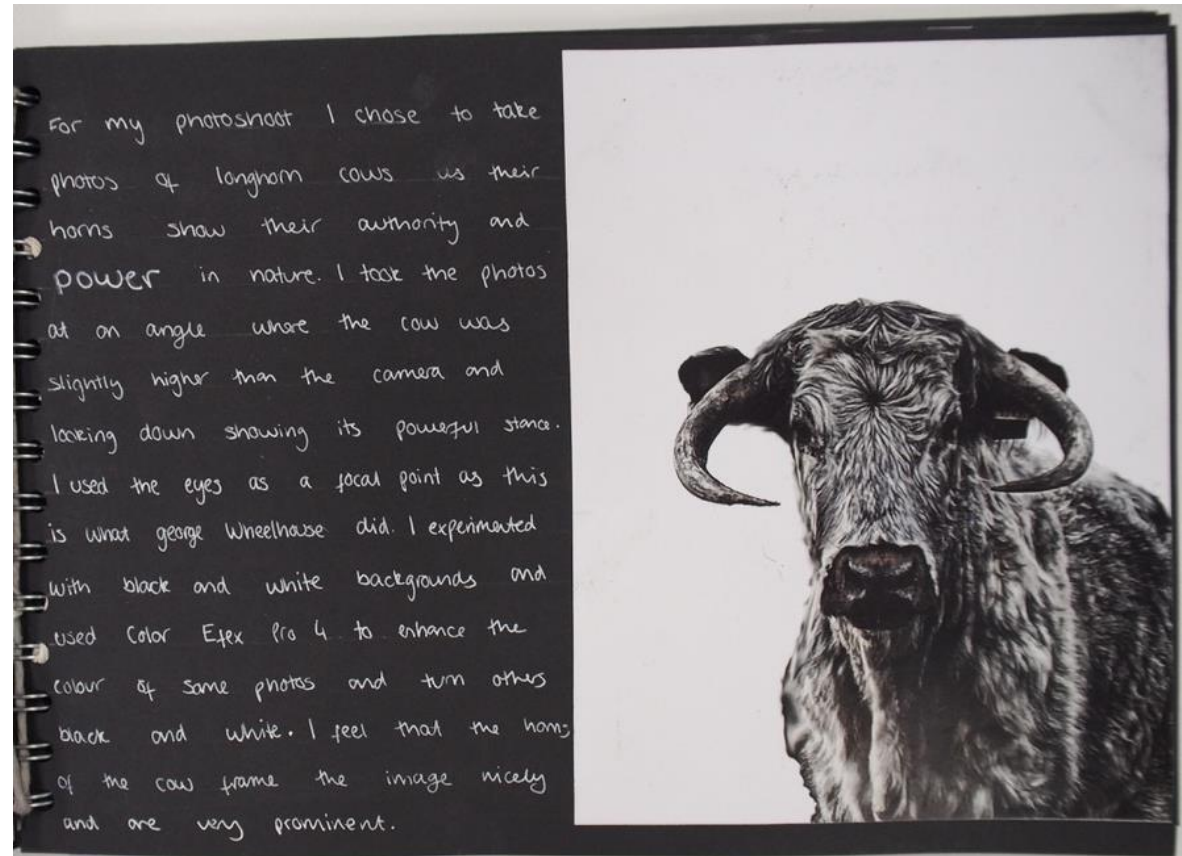 For my photoshoot I chose to take
photos of longhorn cows as their
horns show their authority and
power in nature. I took the photos
at an angle where the cow was
slightly higher than the camera and
looking down showing its powerful stance.
I used the eyes as a focal point as this
is what george Wheelhouse did. I experimented
with black and white backgrounds and
used Color Efex Pro 4 to enhance the
colour of some photos and turn others
black and white. I feel that the horns
of the cow frame the image nicely
and are very prominent.